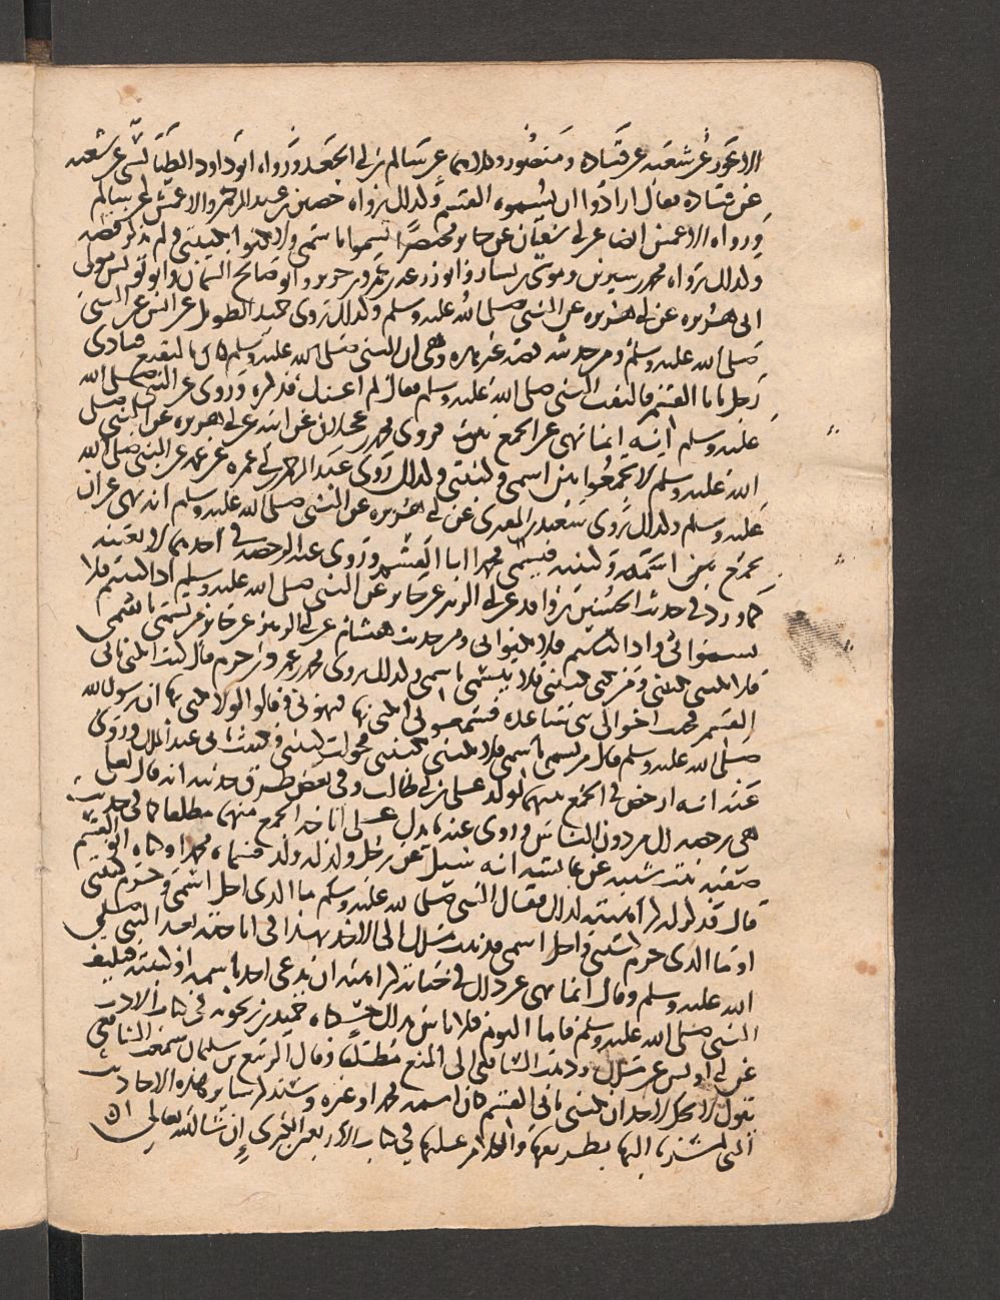 الاعور عن شعبه عن قتاده ومنصور وكلاهما عن سالم بن ابي الجعد ورواه ابو داود الطيالسي عن شعبه
عن قتاده فقال ارادوا ان يسموه القسم وكذلك رواه حصين بن عبد الرحمن والاعمش عن سالم
ورواه الاعمش ايضا عن ابي سفيان عن جابر مختصرا تسموا باسمي ولا تكنوا بكنيتي ولم يذكر قصه
وكذلك رواه محمد بن سيرين وموسى بن يسار وابو زرعه بن عمرو بن جرير وابو صالح السمان وابو يونس مولى
ابي هريره عن ابي هريره عن النبي صلى الله عليه وسلم وكذلك روى حميد الطويل عن انس عن النبي
صلى الله عليه وسلم ومن حديثه قصه غير هذه وهي ان النبي صلى الله عليه وسلم كان بالبقيع فنادى
رجل يا ابا القسم فالتفت النبي صلى الله عليه وسلم فقال لم اعنك فذكره وروي عن النبي صلى الله
عليه وسلم انه انما نهى عن الجمع بينهما فروى محمد بن عجلان عن ابيه عن ابي هريره عن النبي صلى
الله عليه وسلم لا تجمعوا بين اسمي وكنيتي وكذلك روى عبد الرحمن بن ابي عمره عن عمه عن النبي صلى الله
عليه وسلم وكذلك روى سعيد المقبري عن ابي هريره عن النبي صلى الله عليه وسلم انه نهى عن ان
يجمع بين اسمه وكنيته فيسمى محمدا ابا القسم وروي عنه الرخصه في احدهما لا بعينه
كما ورد في حديث الحسين بن واقد عن ابي الزبير عن جابر عن النبي صلى الله عليه وسلم اذا كنيتم فلا
تسموا بي واذا سميتم فلا تكنوا بي ومن حديث هشام عن ابي الزبير عن جابر من تسمى باسمي
فلا يكنى بكنيتي ومن تكنى بكنيتي فلا يتسمى باسمي وكذلك روى محمد بن عمرو بن حزم قال كنت اتكنى بابي
القسم فجئت اخوالي بني ساعده فسمعوني اتكنى بها فنهوني وقالوا لا تكنى بها ان رسول الله
صلى الله عليه وسلم قال من تسمى باسمي فلا يكنى بكنيتي فحولت كنيتي فكنيت بابي عبد الملك وروي
عنه انه ارخص في الجمع بينهما لولد علي بن ابي طالب وفي بعض طرق حديثه انه قال لعلي
هي رخصه لك من دون الناس وروي عنه ما يدل على اباحه الجمع منهما مطلقا كما في حديث
صفيه بنت شيبه عن عايشه انه سيل عن رجل ولد له ولد فسماه محمدا وكناه ابو القسم
فقال قد ذكر لي انك تكره ذلك فقال النبي صلى الله عليه وسلم ما الذي احل اسمي وحرم كنيتي
او ما الذي حرم كنيتي واحل اسمي فذهب مالك الى الاخذ بهذا في اباحته بعد النبي صلى
الله عليه وسلم وقال انما نهى عن ذلك في حياته كراهيه ان يدعى احد باسمه او كنيته فيلتفت
النبي صلى الله عليه وسلم فاما اليوم فلا باس بذلك حكاه حميد بن زنجويه في كتاب الادب
عن ابن ابي اويس عن مالك وذهب الشافعي الى المنع مطلقا وقال الربيع بن سليمان سمعت الشافعي
يقول لا يحل لاحد ان يكتني بابي القسم كان اسمه محمدا او غيره وسنذكر ساير هذه الاحاديث
التي اشرنا اليها بطرقها والكلام عليها في كتاب الاربعين الكبرى ان شا الله تعالى